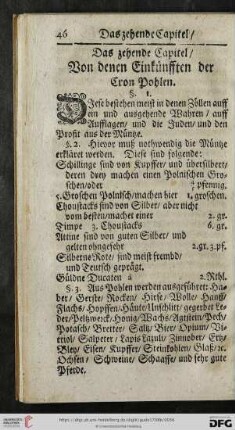 46 Das zehende Capitel/
Das zehende Capitel/
Von denen Einkünfften der
Cron Pohlen.
§. 1.
Diese bestehen meist in denen Zöllen auff
ein und ausgehende Wahren / auff
Aufflagen/ und die Juden/ und den
Profit aus der Müntze.
§. 2. Hievor muß nothwendig die Müntze
erkläret werden. Diese sind folgende:
Schillinge sind von Kupffer/ und übersilbert/
deren drey machen einen Polnischen Gro-
schen/oder pfennig.
5. Groschen Polnisch/machen hier 1. groschen.
Choustacks sind von Silber/ aber nicht
vom besten/machet einer 2. gr.
Timpe 3. Choustacks 6. gr.
Altine sind von guten Silber/ und
gelten ohngefehr 2. gr. 3. pf.
Silberne Rote/ sind meist frembd/
und Deutsch geprägt.
Güldne Ducaten à 2. Rthl.
§. 3. Aus Pohlen werden ausgeführet: Ha-
ber/ Gerste/ Rocken/ Hirse/ Wolle/ Hanff/
Flachs/ Hopffen/ Häute/Unschlitt/ gegerbet Le-
der/Peltzwerck/Honig/Wachs/Agtstein/Pech/
Potasch/ Bretter/ Saltz/ Bier/ Opium/ Vi-
triol/ Salpeter/ Lapis Lazuli/ Zinnober/ Ertz/
Bley/ Eisen/ Kupffer/ Steinkohlen/ Glaß/
Ochsen/ Schweine/ Schaaffe/ und sehr gute
Pferde.